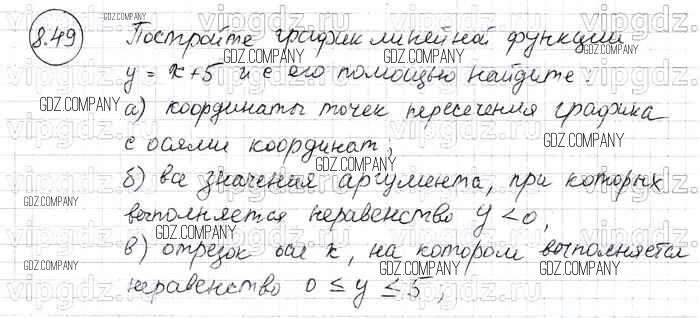 8.49 Постройте график линейной функции
y = x+5 и с его помощью найдите:
а) координаты точек пересечения графика
с осями координат;
б) все значения аргумента, при которых
выполняется неравенство y < 0,
в) отрезок оси x, на котором выполняется
неравенство 0 ≤ y ≤ 5;
GDZ.COMPANY
vipgdz.ru